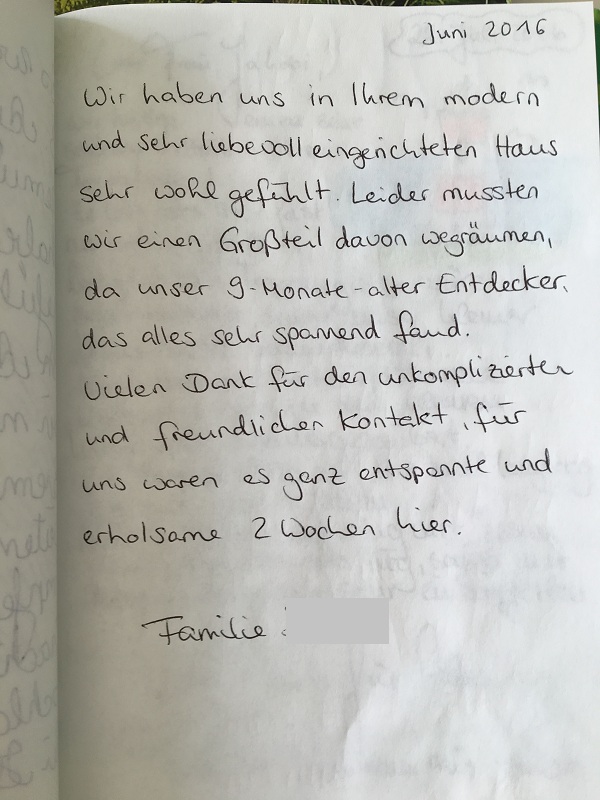 Juni 2016
Wir haben uns in Ihrem modern
und sehr liebevoll eingerichteten Haus
sehr wohl gefühlt. Leider mussten
wir einen Großteil davon wegräumen,
da unser 9-Monate-alter Entdecker,
das alles sehr spannend fand.
Vielen Dank für den unkomplizierten
und freundlichen Kontakt, für
uns waren es ganz entspannte und
erholsame 2 Wochen hier.
Familie